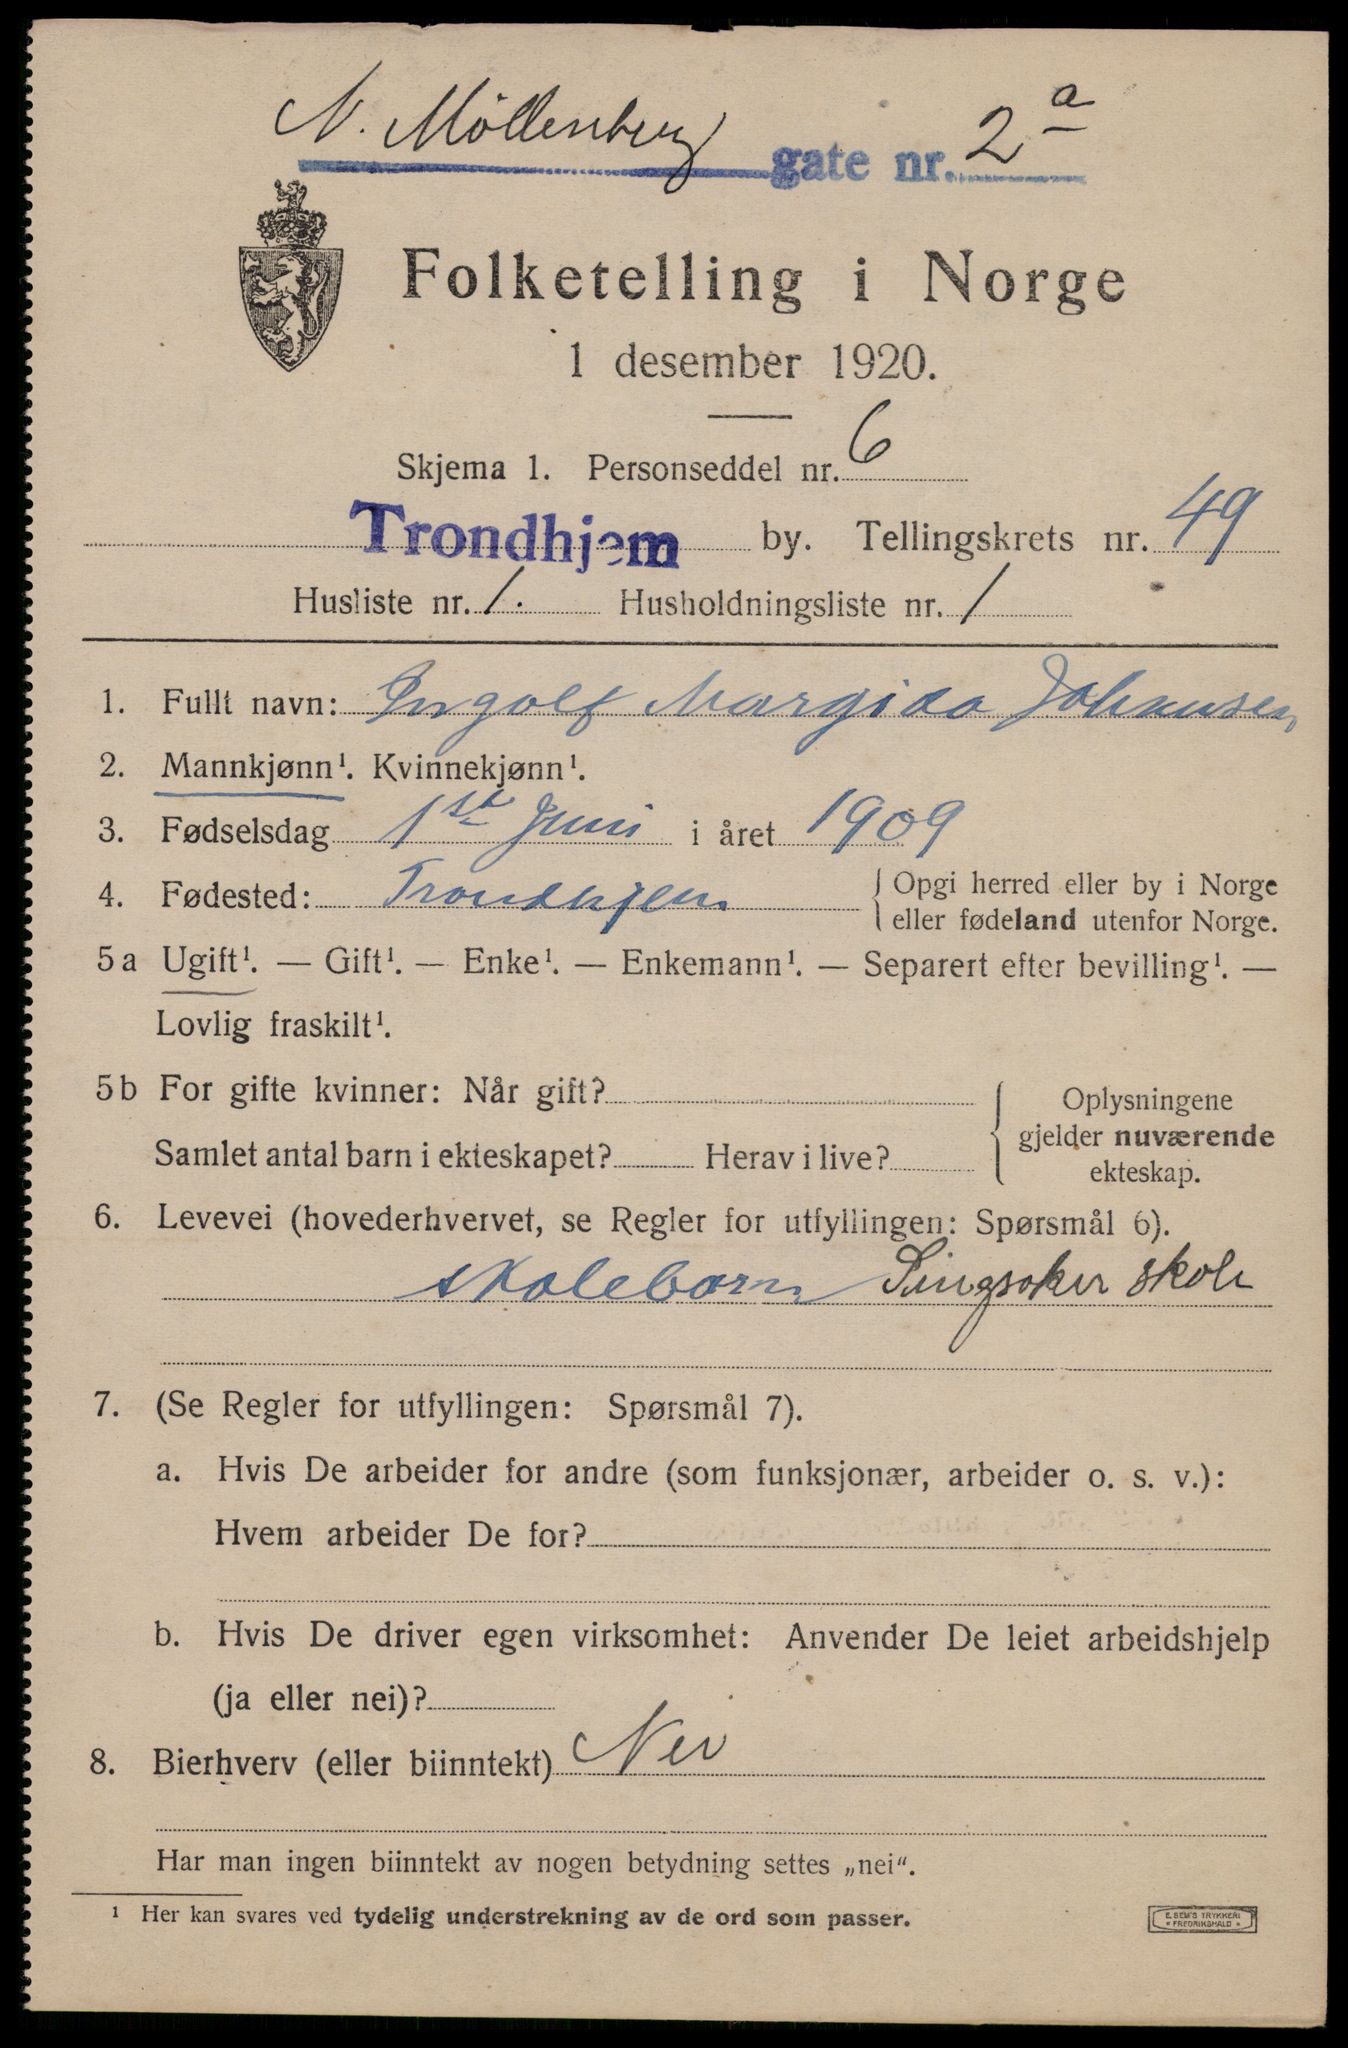 N. Möllenberg gate nr. 2a
Folketelling i Norge
1 desember 1920.
Skjema 1. Personseddel nr. 6
Trondhjem by. Tellingskrets nr. 49
Husliste nr. 1. Husholdningsliste nr. 1
1. Fullt navn: Ingolf Johansen
2. Mannkjønn¹. Kvinnekjønn¹.
3. Fødselsdag 1st Juni i året 1909
4. Fødested: Trondhjem { Opgi herred eller by i Norge
eller fødeland utenfor Norge.
5a Ugift¹. — Gift¹. — Enke¹. — Enkemann¹. — Separert efter bevilling¹. —
Lovlig fraskilt¹.
5b For gifte kvinner: Når gift?
Samlet antal barn i ekteskapet? Herav i live?
Oplysningene
gjelder nuværende
ekteskap.
6. Levevei (hovederhvervet, se Regler for utfyllingen: Spørsmål 6).
skolebarn Singsaker skole
7. (Se Regler for utfyllingen: Spørsmål 7).
a. Hvis De arbeider for andre (som funksjonær, arbeider o. s. v.):
Hvem arbeider De for?
b. Hvis De driver egen virksomhet: Anvender De leiet arbeidshjelp
(ja eller nei)?
8. Bierhverv (eller biinntekt) Nei
Har man ingen biinntekt av nogen betydning settes „nei“.
¹ Her kan svares ved tydelig understrekning av de ord som passer.
E. SEM'S TRYKKERI
FREDRIKSHALD